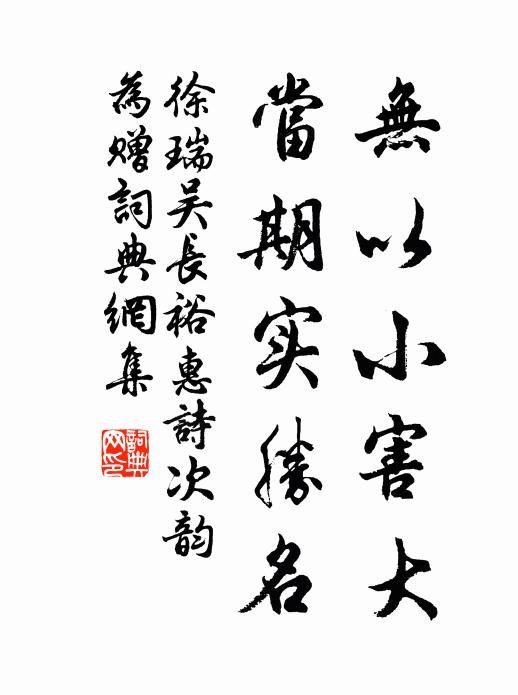 無以小害大
當期实勝名
徐瑞吴長裕惠詩次韵
為贈詞典網集
詞典
网印